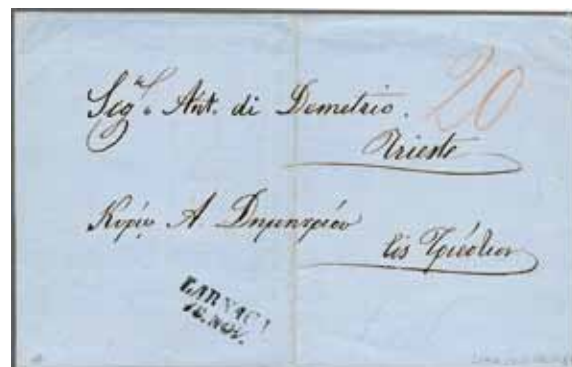 Sig.r Ant. di Demetrio.
20
Trieste
Κυρίῳ Α. Δημητρίου
εἰς Τριέστιον
LARNACA
16. NOV.